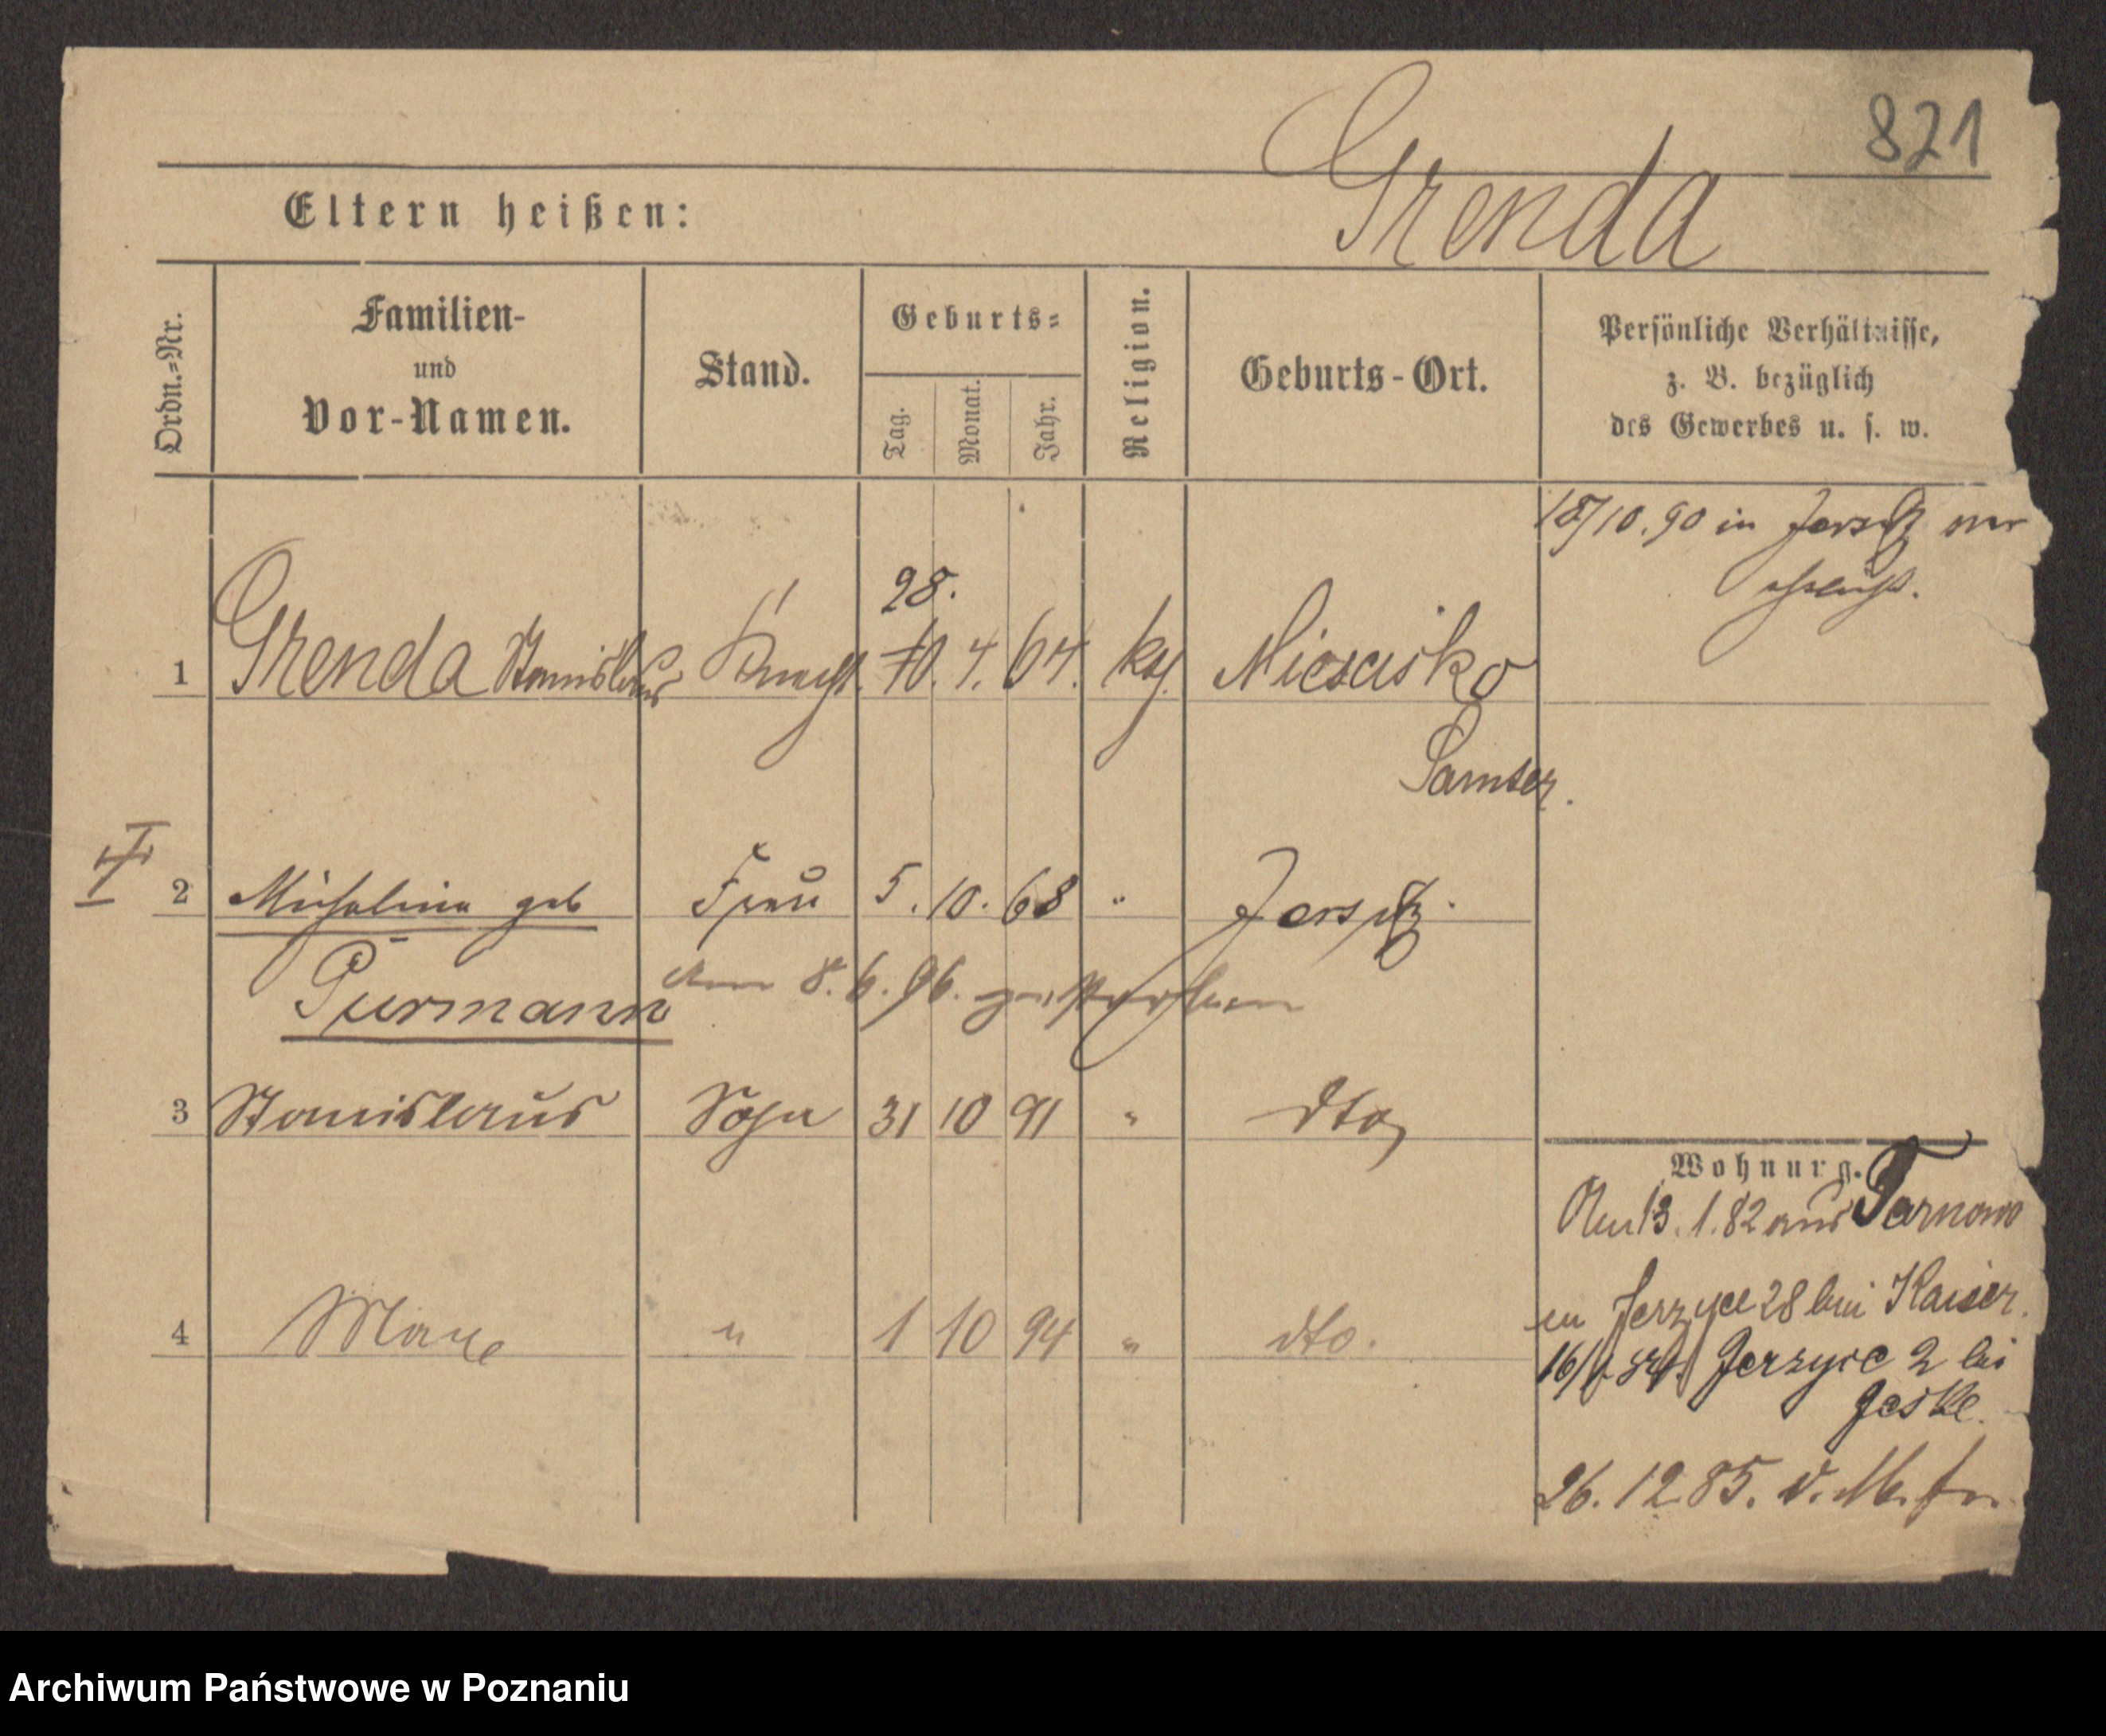 821
Grenda
Eltern heißen:
Ordn.=Nr.
Familien-
und
Vor-Namen.
Stand.
Geburts=
Tag.
Monat.
Jahr.
Religion.
Geburts-Ort.
Persönliche Verhältnisse,
z. B. bezüglich
des Gewerbes u. s. w.
18/10.90 in Jersitz ver
ehelicht.
28.
1 Grenda Stanislaus Knecht. 10. 4. 64. kath. Samter.
II
2 Michalina geb Frau 5. 10. 68 " Jersitz.
Purmann am 8.6.96. gestorben
3 Stanislaus Sohn 31 10 91 " dto
4 Max " 1 10 94 " dto.
Wohnung.
Am 13.1.82 aus Tarnowo
in Jerzyce 28 bei Kaiser.
Jerzyce 2 bei
Geske.
26.12 85. v.
Archiwum Państwowe w Poznaniu